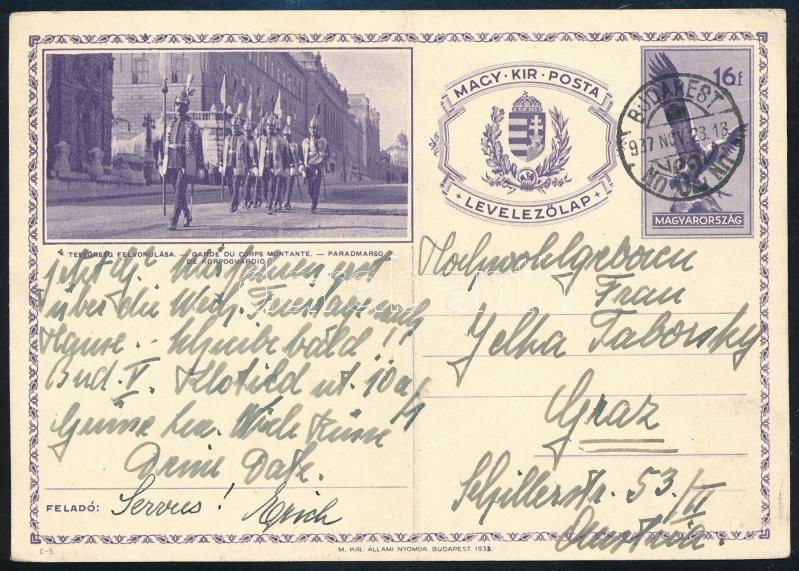 MAGY·KIR·POSTA
LEVELEZŐLAP
16f
MAGYARORSZÁG
BUDAPEST
937 NOV 23. 18
TESTŐRSÉG FELVONULÁSA. — GARDE DU CORPS MONTANTE. — PARADMARSO
DE KORPOGVARDIO
über die Weih. Feiertage nach
Hause. Schreibe bald!
Bud. V. Klotild ut. 10a/1
Grüsse Viele Küsse
Deine
FELADÓ: Servus! Erich
Hochwohlgeboren
Frau
Jelka Taborsky
Graz
Schillerstr. 53/II
Austria.
C-5.
M. KIR. ÁLLAMI NYOMDA BUDAPEST. 1933.